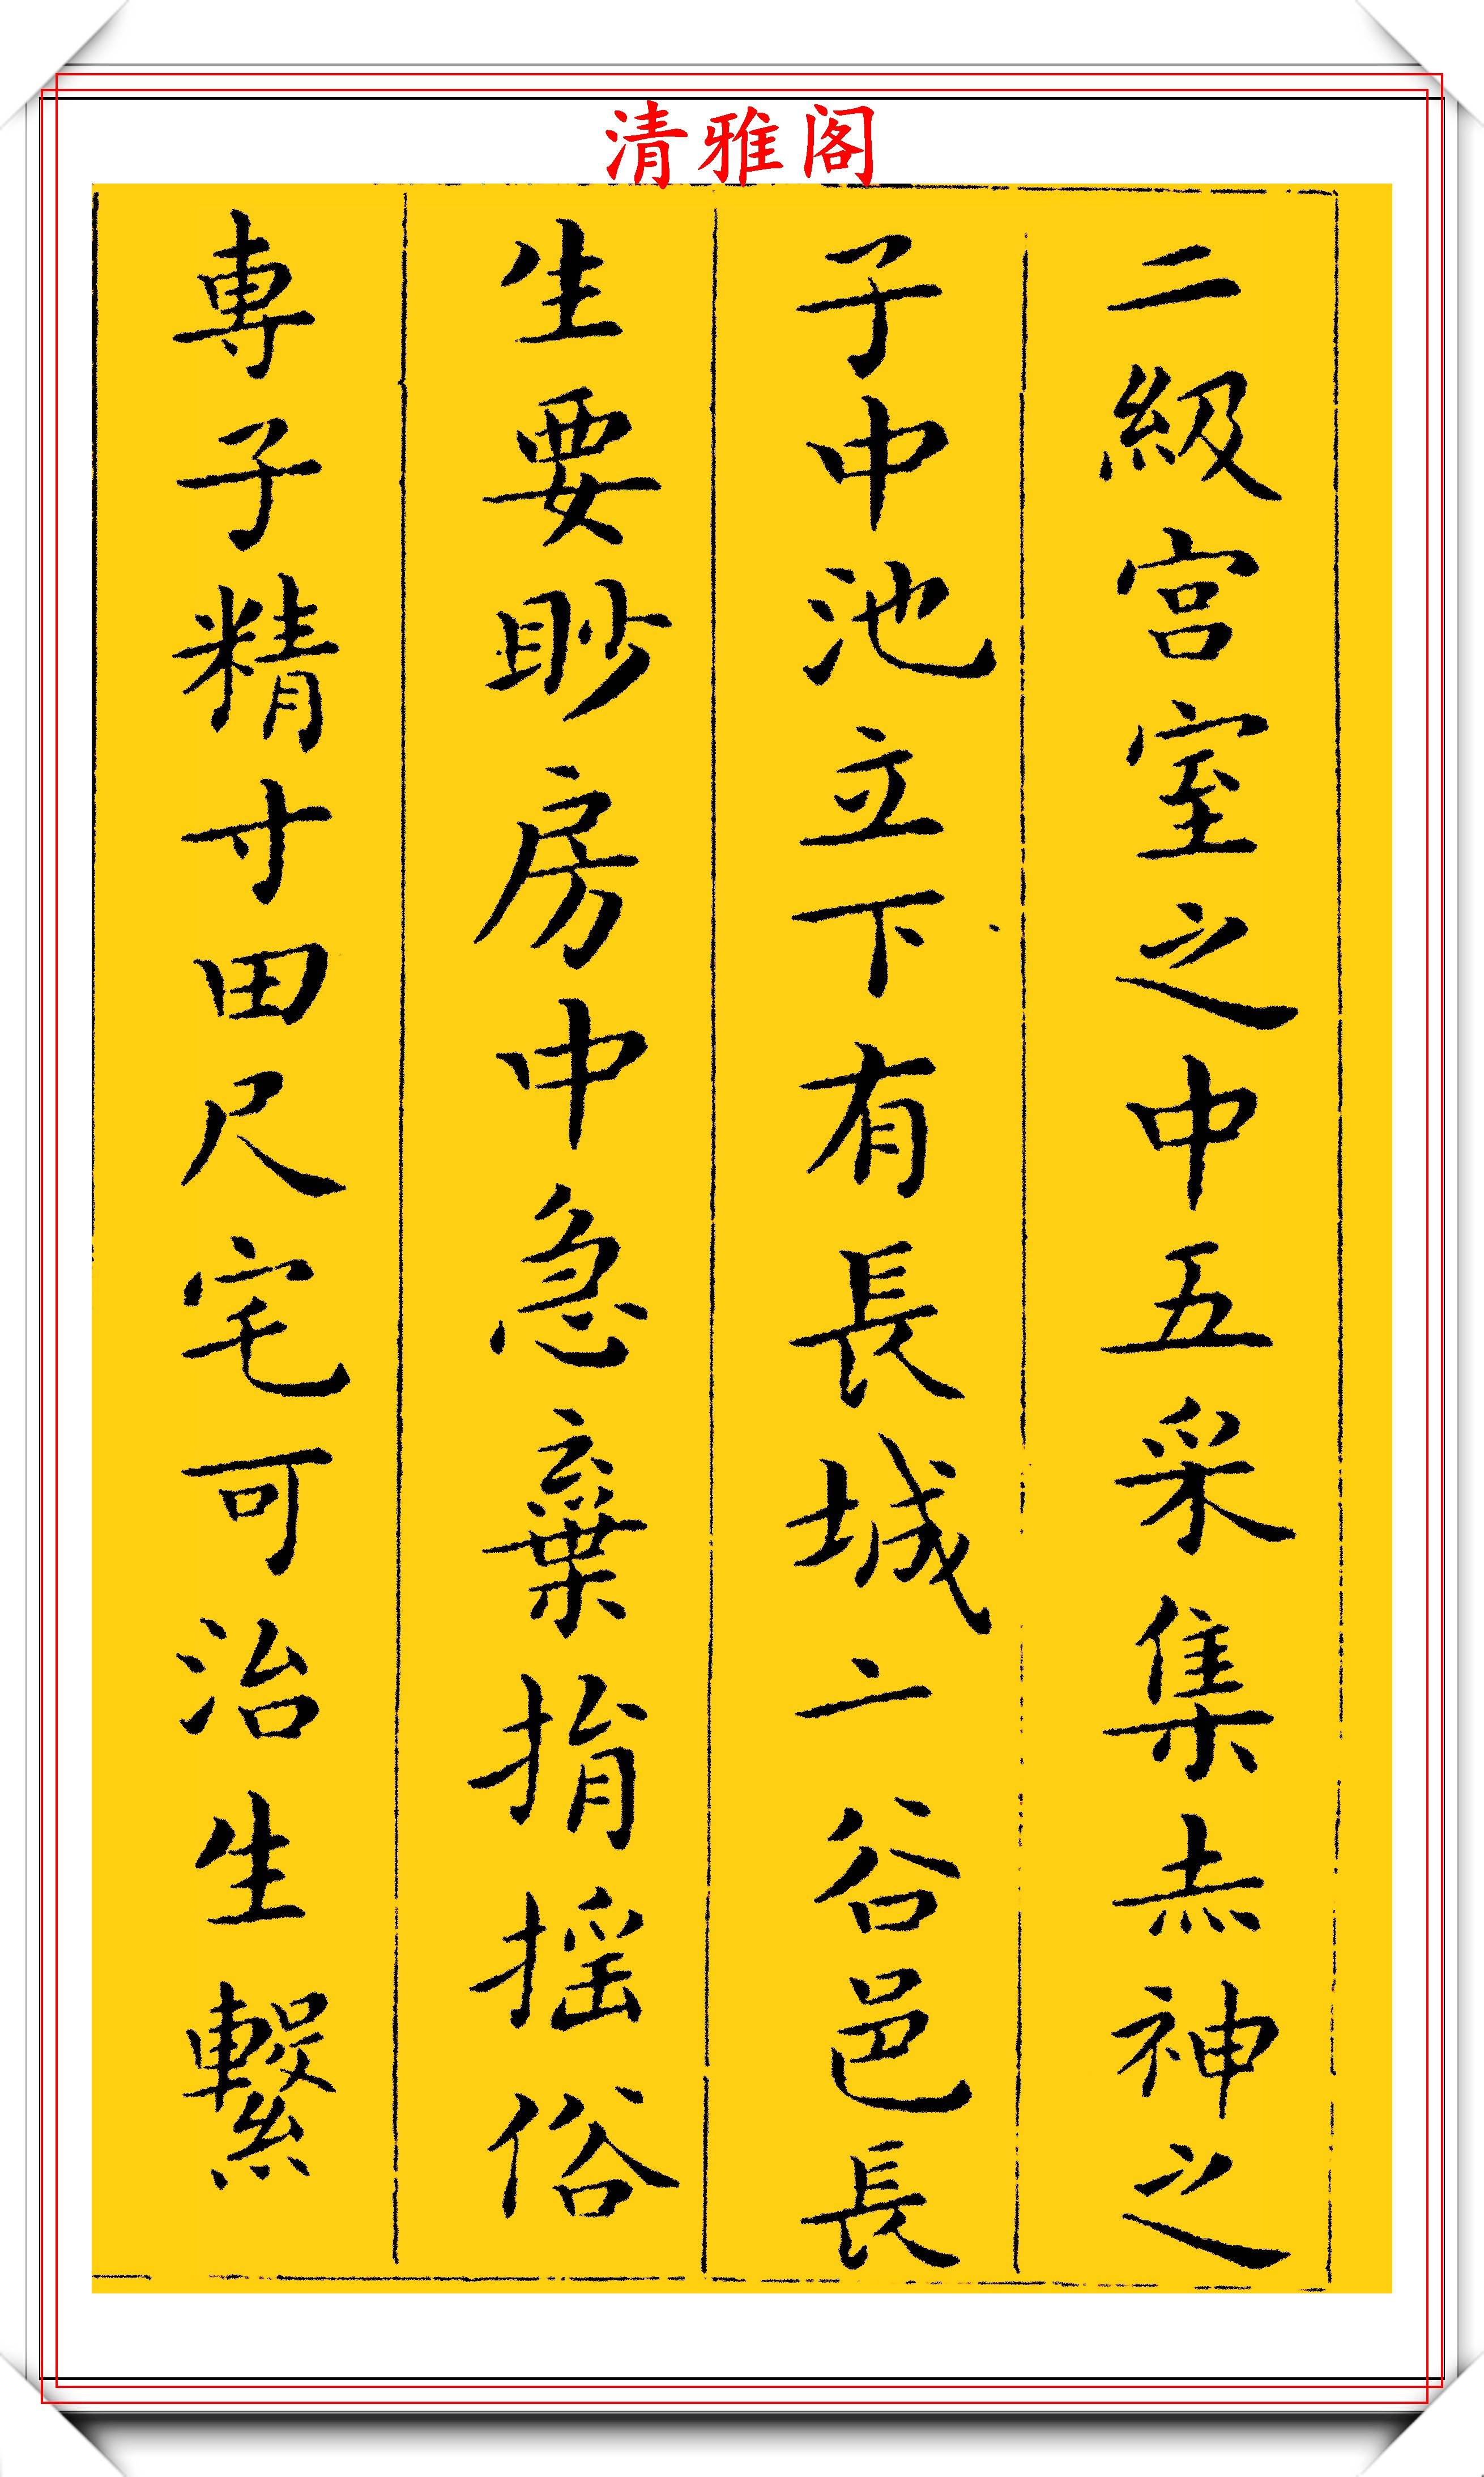 清雅阁
二級宫室之中五采集赤神之
子中池立下有長城二谷邑長
生要眇房中急棄捐摇俗
專子精寸田尺宅可治生繫